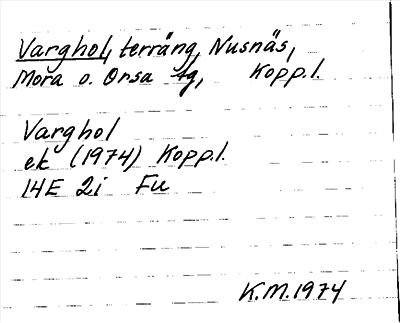 Varghol, terräng, Nusnäs,
Mora o. Orsa tg, Kopp.l.
Varghol
ek (1974) Kopp.l.
14E 2i Fu
K.M.1974